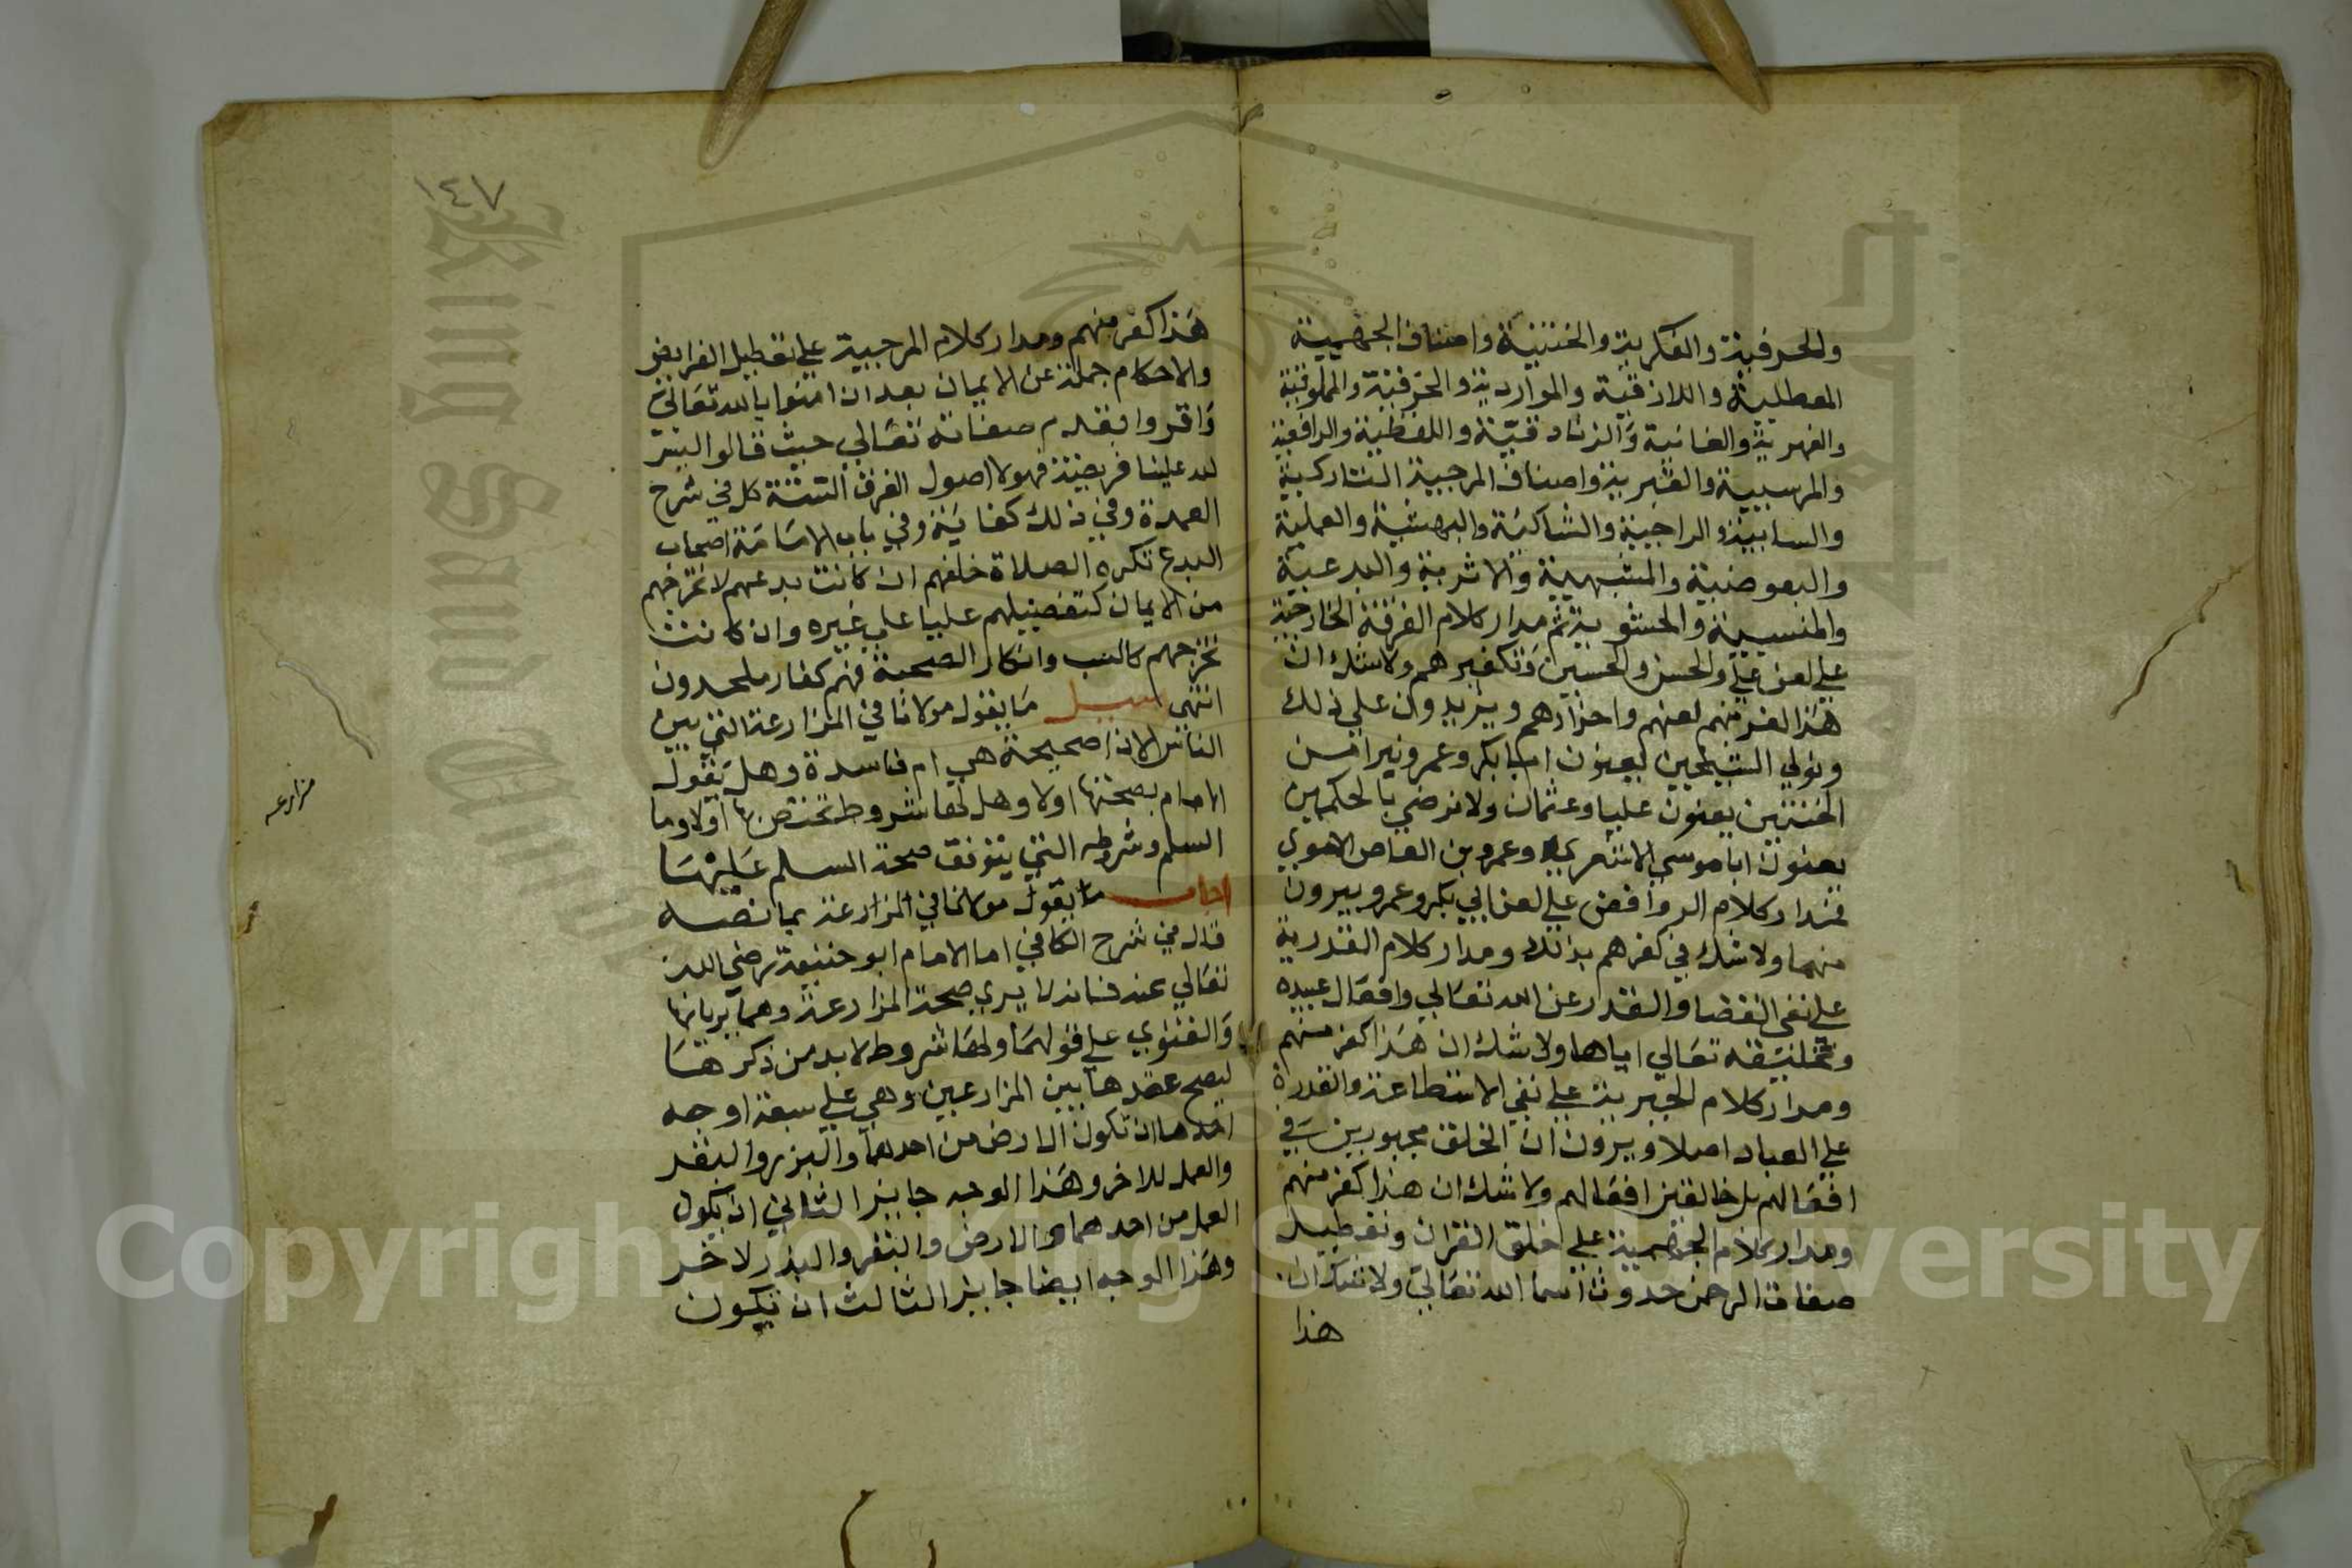 والحرفية والفكرية والخنثية واصناف الجهمية
المعطلية واللازقية والمواردية والحرفية والمملوقية
والفهرية والفانية والزنادقية واللفظية والرافعية
والمرسيية والقبرية واصناف المرجبية التاركية
والسابية والراجية والشاكية والبهشية والعملية
والبعوضية والمشبهية والاثرية والبدعية
والمنسيية والحشوية ثم مدار كلام الفرقة الخارجية
علي لعن علي والحسن والحسين وتكفيرهم ولا شك ان
هذا الفر منهم لعنهم واخزاهم ويزيدون علي ذلك
ونولي الشيخين يعنون ابا بكر وعمر ونبرا من
الختنين يعنون عليا وعثمان ولا نرضي بالحكمين
يعنون ابا موسي الاشعري وعمرو بن العاص الاموي
فمدار كلام الروافض علي لعن ابي بكر وعمر ويبرون
منهما ولا شك في كفرهم بذلك ومدار كلام القدرية
علي نفي القضا والقدر عن الله تعالي وافعال عبيده
وتخليقه تعالي اياها ولا شك ان هذا كفر منهم
ومدار كلام الجبرية علي نفي الاستطاعة والقدرة
علي العباد اصلا ويرون ان الخلق مجبورين في
افعالهم بل خالفين افعالهم ولا شك ان هذا كفر منهم
ومدار كلام الجهمية علي خلق القران وتعطيل
صفات الرحمن حدوث اسما الله تعالي ولا شك ان
هذا
١٤٧
هذا كفر منهم ومدار كلام المرجبية علي تعطيل الفرايض
والاحكام جملة عن الايمان بعد ان امنوا بالله تعالي
واقروا بقدم صفاته تعالي حيث قالوا ليس
لله علينا فريضة فهولا اصول الفرق الستة كل في شرح
العمدة وفي ذلك كفاية وفي باب الامامة اصحاب
البدع تكره الصلاة خلفهم ان كانت بدعهم لا تخرجهم
من الايمان كتفضيلهم عليا علي غيره وان كانت
تخرجهم كالسب وانكار الصحبة فهم كفار ملحدون
انتهي سيل ما يقول مولانا في المزارعة التي بين
الناس الان اصحيحة هي ام فاسدة وهل يقول
الامام بصحتها اولا وهل لها شروط تختص بها اولا وما
السلم وشروطه التي يتوقف صحة السلم عليها
اجاب ما يقول مولانا في المزارعة بما نصه
قال في شرح الكافي اما الامام ابو حنيفة رضي الله
تعالي عنه فانه لا يري صحة المزارعة وهما يريانها
والفتوي علي قولهما ولها شروط لا بد من ذكرها
ليصح عقدها بين المزارعين وهي علي سبعة اوجه
احدها ان تكون الارض من احدهما والبزر والبقر
والعمل للاخر وهذا الوجه جايز الثاني ان يكون
العمل من احدهما والارض والبقر والبذر لاخر
وهذا الوجه ايضا جايز الثالث ان تكون
مزارعه
Copyright © King Saud University